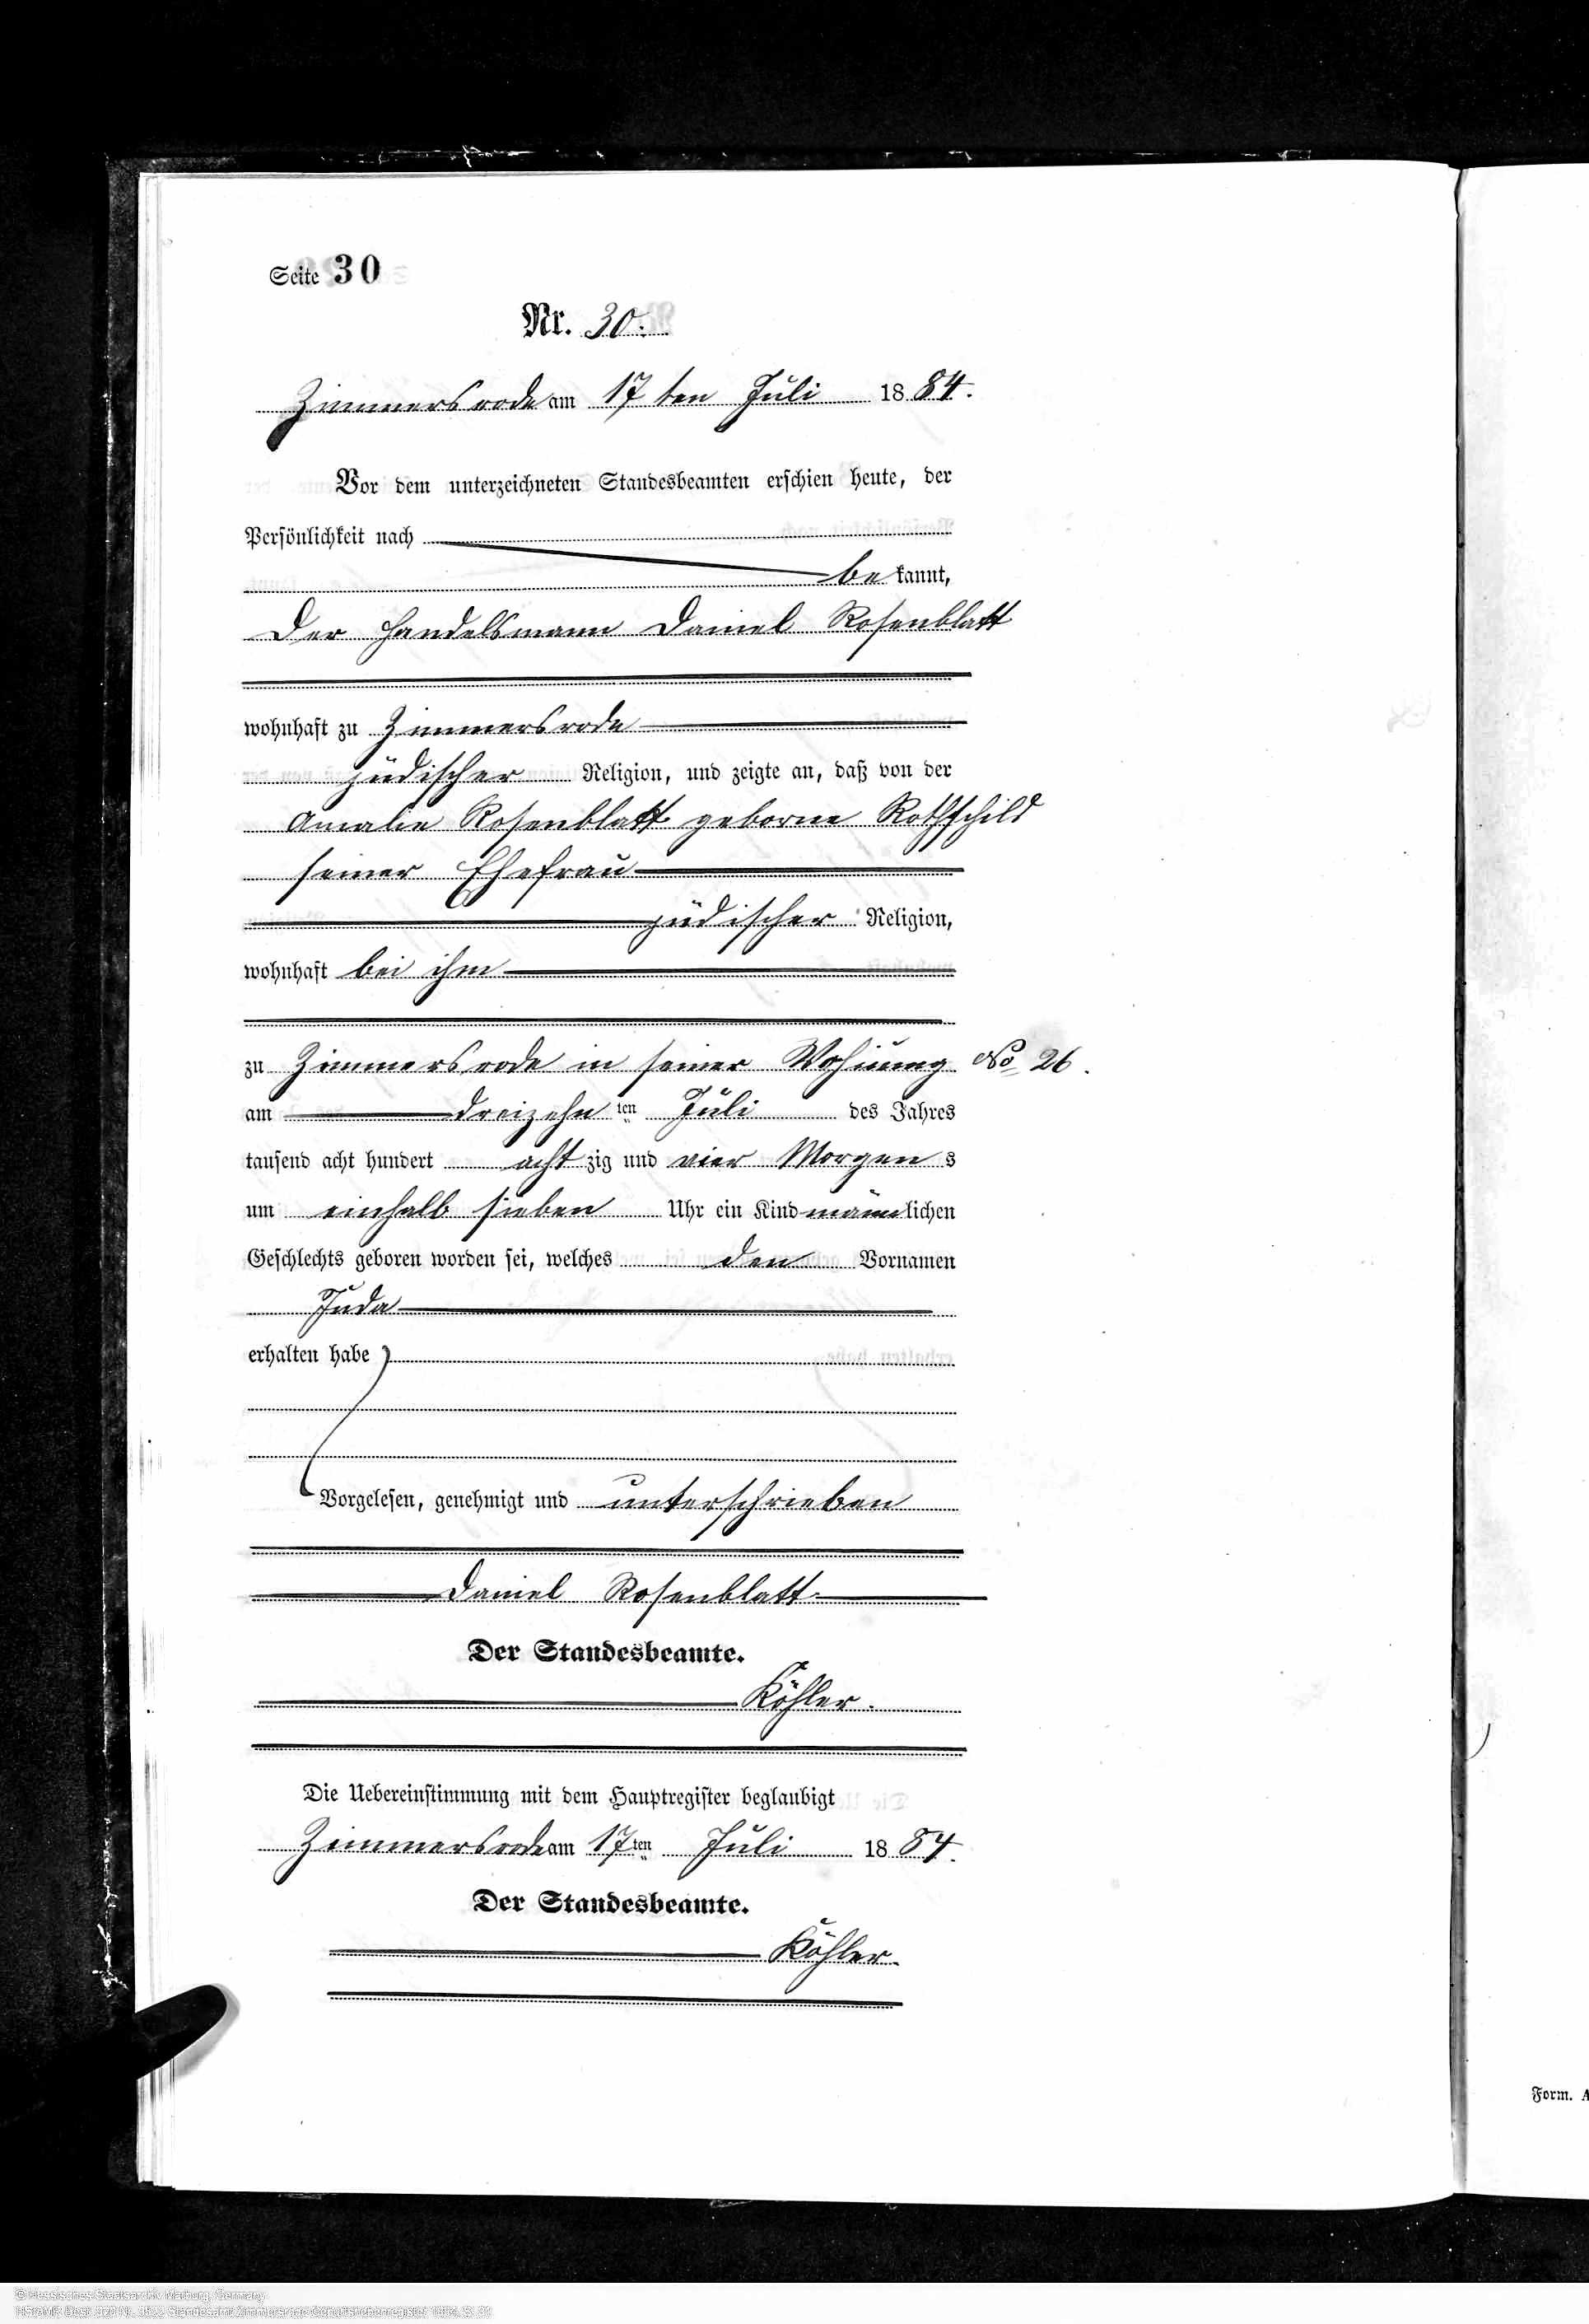 Seite 30
Nr. 30.
Zimmersrode am 17ten Juli 1884.
Vor dem unterzeichneten Standesbeamten erschien heute, der
Persönlichkeit nach
bekannt,
Der Handelsmann Daniel Rosenblatt
wohnhaft zu Zimmersrode
jüdischer Religion, und zeigte an, daß von der
Amalie Rosenblatt geborne Rothschild
seiner Ehefrau
jüdischer Religion,
wohnhaft bei ihm
zu Zimmersrode in seiner Wohnung No 26.
am dreizehnten Juli des Jahres
tausend acht hundert achtzig und vier Morgens
um einhalb sieben Uhr ein Kind männlichen
Geschlechts geboren worden sei, welches den Vornamen
Juda
erhalten habe
Vorgelesen, genehmigt und unterschrieben
Daniel Rosenblatt
Der Standesbeamte.
Köhler.
Die Uebereinstimmung mit dem Hauptregister beglaubigt
Zimmersrode am 17ten Juli 1884.
Der Standesbeamte.
Köhler.
Form. A
© Hessisches Staatsarchiv Marburg, Germany